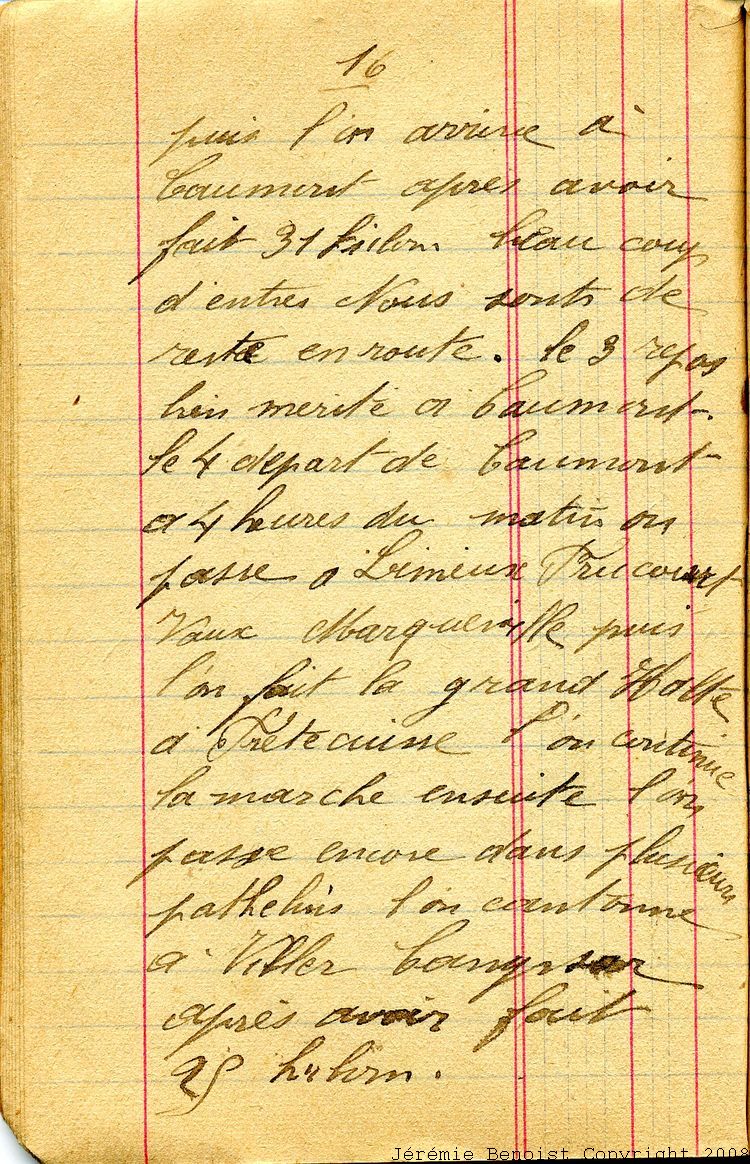 16
puis l'on arrive à
Caumont après avoir
fait 31 kilom beau coup
d'entres Nous sonts de
resté en route. le 3 repos
bien merité a Caumont.
le 4 départ de Caumont
a 4 heures du matin on
passe a Limeux Frucourt
Vaux Marquenville puis
l'on fait la grand Halte
à Fretecuisse l'on continue
la marche ensuite l'on
passe encore dans plusieurs
pathelins l'on cantonne
à Viller
après avoir fait
25 kilom.
Jérémie Benoist Copyright 2008